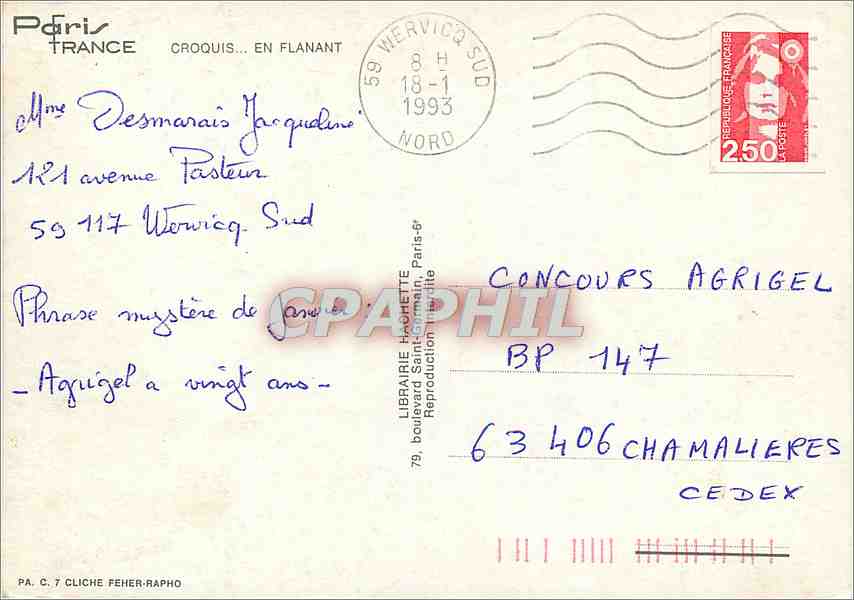 Paris
FRANCE
CROQUIS... EN FLANANT
59 WERVICQ SUD
8 H
18-1
1993
NORD
REPUBLIQUE FRANÇAISE
LA POSTE
2.50
Mme Desmarais Jacqueline
121 avenue Pasteur
59 117 Wervicq Sud
Phrase mystère de janvier :
- Agrigel a vingt ans -
CPAPHIL
LIBRAIRIE HACHETTE
79, boulevard Saint-Germain, Paris-6e
Reproduction interdite
CONCOURS AGRIGEL
BP 147
63 406 CHAMALIERES
CEDEX
PA. C. 7 CLICHE FEHER-RAPHO